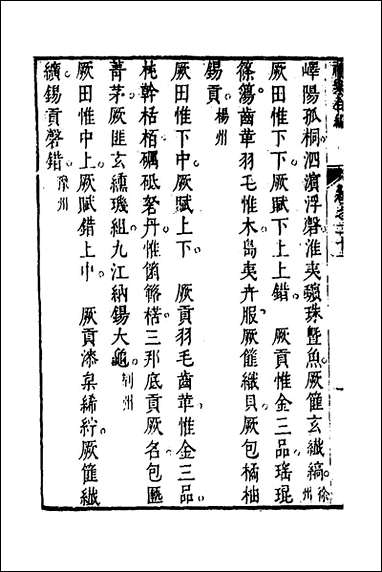 嶧陽孤桐泗濵浮磬淮夷蠙珠曁魚厥篚玄纎縞。徐州
厥田惟下下。厥賦下上上錯。　厥貢惟金三品瑤琨
篠簜齒革羽毛惟木島夷卉服厥篚織貝厥包橘柚
錫貢。楊州
厥田惟下中。厥賦上下。　厥貢羽毛齒革惟金三品
杶幹栝栢礪砥砮丹惟箘簵楛三邦底貢厥名包匭
菁茅厥匪玄纁璣組九江納錫大龜。荆州
厥田惟中上。厥賦錯上中。　厥貢漆枲絺紵。厥篚纎
纊錫貢磬錯。豫州